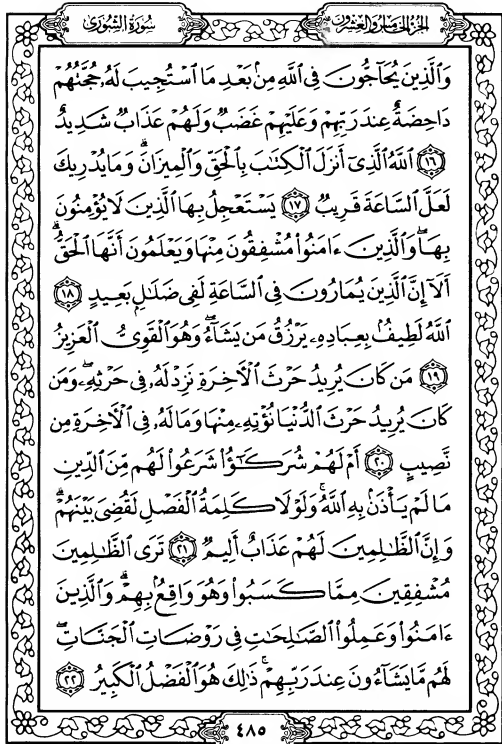 سُورَةُ الشُّورَىٰ الجُزْءُ الخَامِسُ وَالعِشْرُونَ
وَالَّذِينَ يُحَاجُّونَ فِي اللَّهِ مِنۢ بَعْدِ مَا ٱسْتُجِيبَ لَهُۥ حُجَّتُهُمْ
دَاحِضَةٌ عِندَ رَبِّهِمْ وَعَلَيْهِمْ غَضَبٌ وَلَهُمْ عَذَابٌ شَدِيدٌ
﴿١٦﴾ ٱللَّهُ ٱلَّذِىٓ أَنزَلَ ٱلْكِتَٰبَ بِٱلْحَقِّ وَٱلْمِيزَانَ ۗ وَمَا يُدْرِيكَ
لَعَلَّ ٱلسَّاعَةَ قَرِيبٌ ﴿١٧﴾ يَسْتَعْجِلُ بِهَا ٱلَّذِينَ لَا يُؤْمِنُونَ
بِهَا ۖ وَٱلَّذِينَ ءَامَنُوا۟ مُشْفِقُونَ مِنْهَا وَيَعْلَمُونَ أَنَّهَا ٱلْحَقُّ ۗ
أَلَآ إِنَّ ٱلَّذِينَ يُمَارُونَ فِى ٱلسَّاعَةِ لَفِى ضَلَٰلٍۭ بَعِيدٍ ﴿١٨﴾
ٱللَّهُ لَطِيفٌۢ بِعِبَادِهِۦ يَرْزُقُ مَن يَشَآءُ ۖ وَهُوَ ٱلْقَوِىُّ ٱلْعَزِيزُ
﴿١٩﴾ مَن كَانَ يُرِيدُ حَرْثَ ٱلْءَاخِرَةِ نَزِدْ لَهُۥ فِى حَرْثِهِۦ ۖ وَمَن
كَانَ يُرِيدُ حَرْثَ ٱلدُّنْيَا نُؤْتِهِۦ مِنْهَا وَمَا لَهُۥ فِى ٱلْءَاخِرَةِ مِن
نَّصِيبٍ ﴿٢٠﴾ أَمْ لَهُمْ شُرَكَٰٓؤُا۟ شَرَعُوا۟ لَهُم مِّنَ ٱلدِّينِ
مَا لَمْ يَأْذَنۢ بِهِ ٱللَّهُ ۚ وَلَوْلَا كَلِمَةُ ٱلْفَصْلِ لَقُضِىَ بَيْنَهُمْ ۗ
وَإِنَّ ٱلظَّٰلِمِينَ لَهُمْ عَذَابٌ أَلِيمٌ ﴿٢١﴾ تَرَى ٱلظَّٰلِمِينَ
مُشْفِقِينَ مِمَّا كَسَبُوا۟ وَهُوَ وَاقِعٌۢ بِهِمْ ۗ وَٱلَّذِينَ
ءَامَنُوا۟ وَعَمِلُوا۟ ٱلصَّٰلِحَٰتِ فِى رَوْضَاتِ ٱلْجَنَّاتِ ۖ
لَهُم مَّا يَشَآءُونَ عِندَ رَبِّهِمْ ۚ ذَٰلِكَ هُوَ ٱلْفَضْلُ ٱلْكَبِيرُ ﴿٢٢﴾
٤٨٥